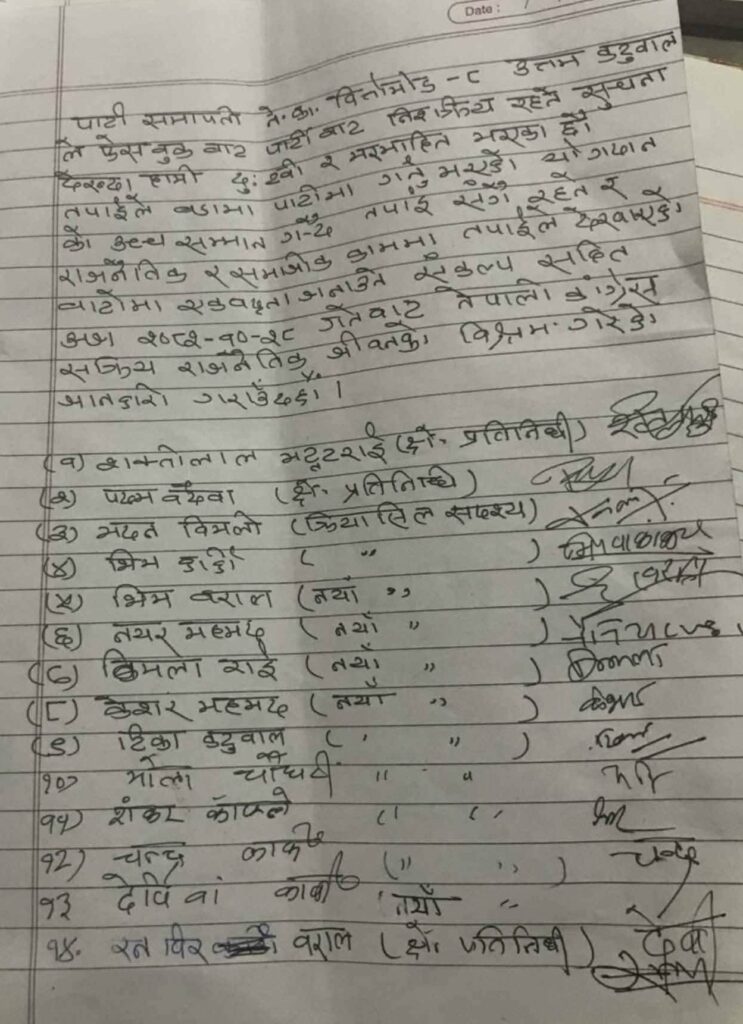 Date :
पार्टी सभापती ने. का. विर्तामोड - ८ उत्तम कटुवाल
ले फेसबुक बाट पार्टी बाट निस्क्रिय रहने सुचना
देख्दा हामी दुःखी र मरमाहित भएका छौ।
तपाईले वडामा पार्टीमा गर्नु भएको योगदान
को उच्च सम्मान गर्दै तपाई सँगै रहने र
राजनैतिक र समाजीक काममा तपाईले देखाएको
बाटोमा एकवद्दता जनाउने संकल्प सहित
आज २०८२-१०-२८ गतेबाट नेपाली कांग्रेस
सक्रिय राजनैतिक जीवनको विश्राम गरेको
जानकारी गराउँदछौ।
(१) शान्तीलाल भट्टराई (क्षे. प्रतिनिधी)
(२) पदम वैदवा (क्षे. प्रतिनिधि)
(३) मदन विमली (क्रियासिल सदस्य)
(४) भिम कार्की ( " )
(५) भिम वराल (नयाँ " )
(६) नयर महमद (नयाँ " )
(७) बिमला राई (नयाँ " ) बिमला
(८) केशर महमद (नयाँ " ) केशर
(९) टिका कटुवाल ( " " )
१०) भोला चौधरी " "
११) शंकर काफ्ले " "
१२) चन्द्र कार्की ( " " ) चन्द्र
१३ देवि मां कार्की नयाँ "
१४. रन विर वराल (क्षे. प्रतिनिधी) देवी